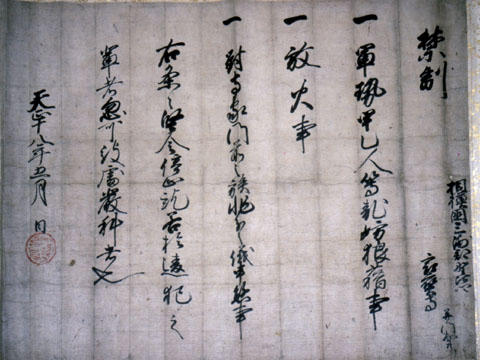 禁制
相模国三浦郡野比
寺
并門前
一 軍勢甲乙人等乱妨狼藉事
一 放火事
一 対寺家門前之族非分之儀申懸事
右条々堅令停止訖若於違犯之
輩者忽可被処厳科者也
天正十八年五月 日